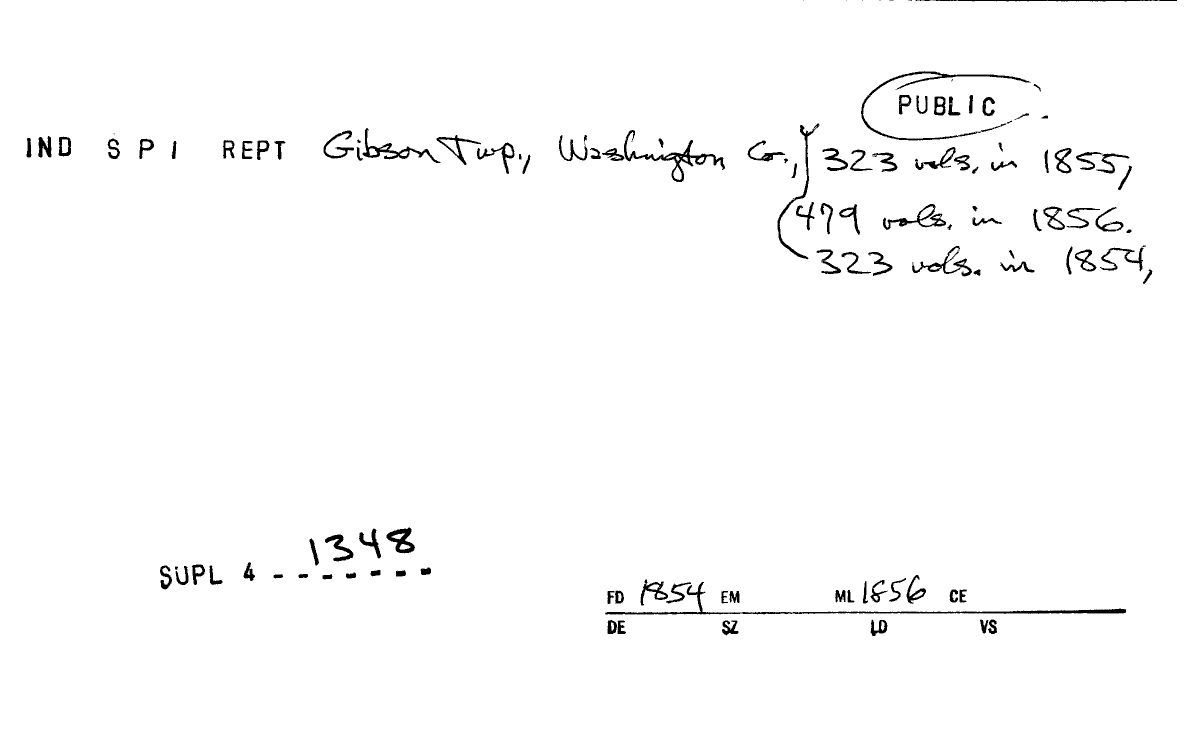 PUBLIC
IND S P I REPT Gibson Twp., Washington Co., 323 vols. in 1855,
479 vols. in 1856.
323 vols. in 1854,
1348
SUPL 4 -------
FD 1854 EM ML 1856 CE
DE SZ LD VS